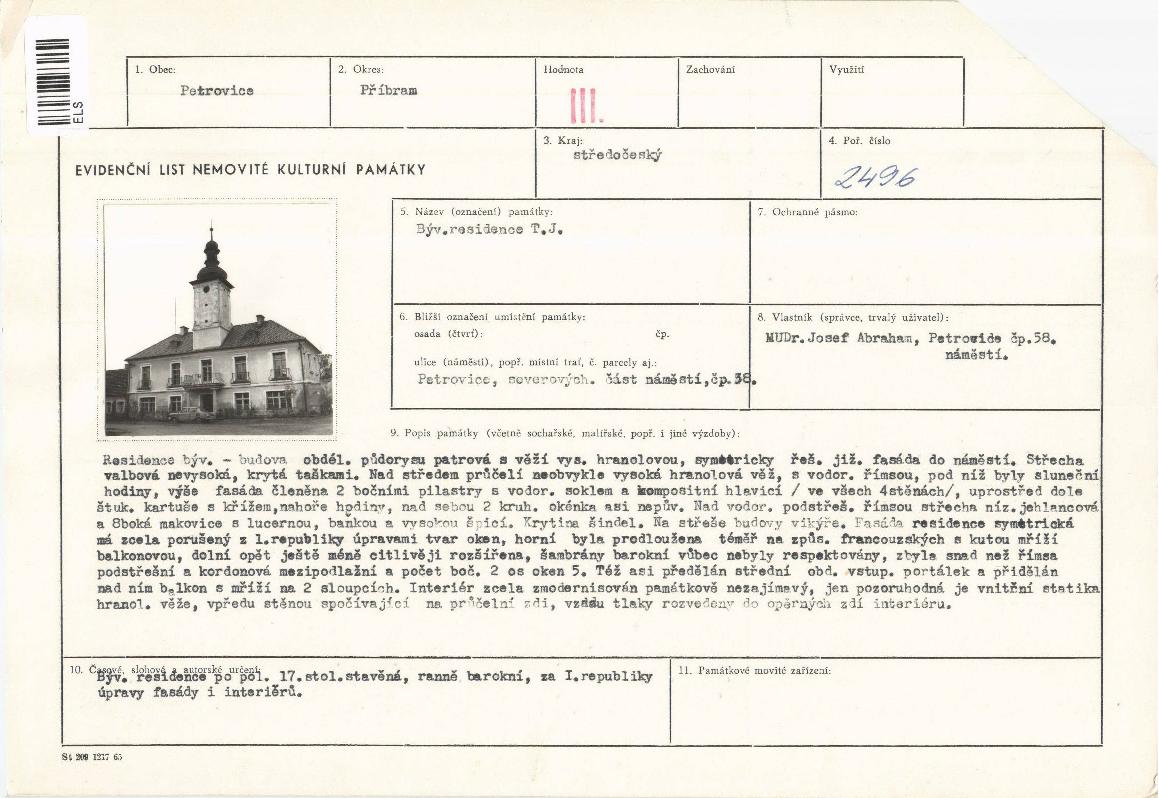 ELS
1. Obec:
Petrovice
2. Okres:
Příbram
Hodnota
III.
Zachování
Využití
EVIDENČNÍ LIST NEMOVITÉ KULTURNÍ PAMÁTKY
3. Kraj:
středočeský
4. Poř. číslo
2496
5. Název (označení) památky:
Býv.residence T.J.
7. Ochranné pásmo:
6. Bližší označení umístění památky:
osada (čtvrť): čp.
ulice (náměstí), popř. místní trať, č. parcely aj.:
Petrovice, severových. část náměstí,čp.38.
8. Vlastník (správce, trvalý uživatel):
MUDr.Josef Abraham, Petrovide čp.58.
náměstí.
9. Popis památky (včetně sochařské, malířské, popř. i jiné výzdoby):
Residence býv. - budova obdél. půdorysu patrová s věží vys. hranolovou, symetricky řeš. již. fasáda do náměstí. Střecha
valbová nevysoká, krytá taškami. Nad středem průčelí neobvykle vysoká hranolová věž, s vodor. římsou, pod níž byly sluneční
hodiny, výše fasáda členěna 2 bočními pilastry s vodor. soklem a kompositní hlavicí / ve všech 4stěnách/, uprostřed dole
štuk. kartuše s křížem,nahoře hodiny, nad sebou 2 kruh. okénka asi nepův. Nad vodor. podstřeš. římsou střecha níz.jehlancová
a 8boká makovice s lucernou, bankou a vysokou špicí. Krytina šindel. Na střeše budovy vikýře. Fasáda residence symetrická
má zcela porušený z 1.republiky úpravami tvar oken, horní byla prodloužena téměř na způs. francouzských s kutou mříží
balkonovou, dolní opět ještě méně citlivěji rozšířena, šambrány barokní vůbec nebyly respektovány, zbyla snad než římsa
podstřešní a kordonová mezipodlažní a počet boč. 2 os oken 5. Též asi předělán střední obd. vstup. portálek a přidělán
nad ním balkon s mříží na 2 sloupcích. Interiér zcela zmodernisován památkově nezajímavý, jen pozoruhodná je vnitřní statika
hranol. věže, vpředu stěnou spočívající na průčelní zdi, vzadu tlaky rozvedeny do opěrných zdí interiéru.
10. Časové, slohová a autorské určení:
Býv. residence po pol. 17.stol.stavěná, ranně barokní, za I.republiky
úpravy fasády i interiérů.
11. Památkové movité zařízení:
St 209 1217 65